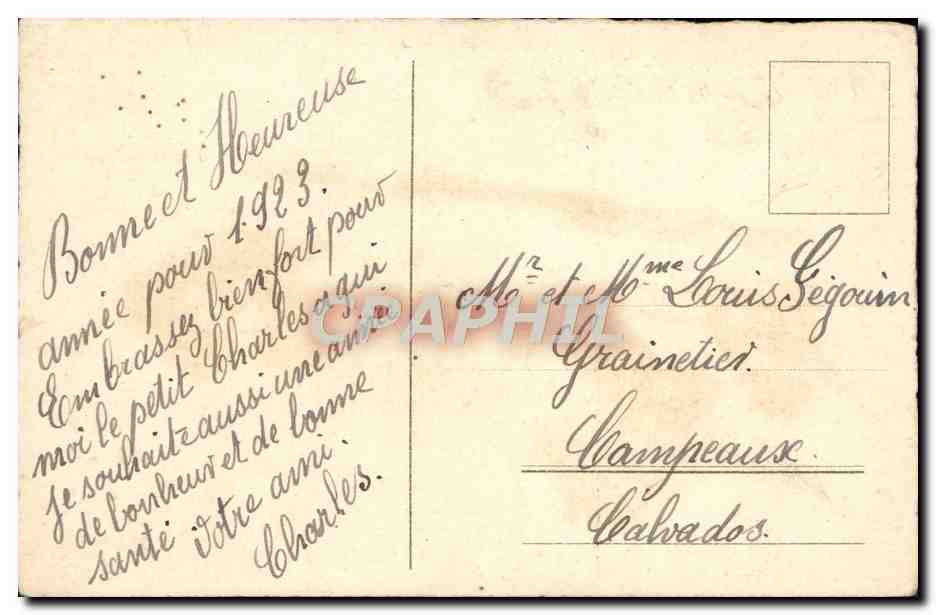 Bonne et Heureuse
année pour 1923.
Embrassez bien fort pour
moi le petit Charles a qui
je souhaite aussi une année
de bonheur et de bonne
santé Votre ami.
Charles.
Mr et Mme Louis Ségouin
Grainetier.
Campeaux.
Calvados.
CPAPHIL